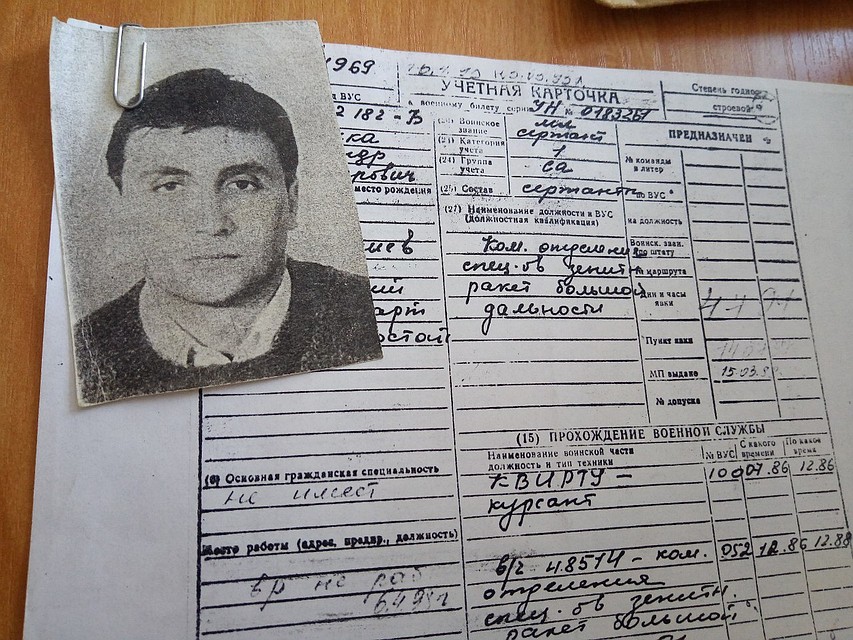 1969
УЧЕТНАЯ КАРТОЧКА
к военному билету серии УН № 0183251
Степень годнос
строевой
ВУС
182 - В
ка
др
рович
место рождения
иев
ий
арт
остой
(6) Основная гражданская специальность
не имеет
Место работы (адрес, предпр., должность)
вр не раб
Воинское звание
мл. сержант
(23) Категория учета
1
(24) Группа учета
са
(25) Состав
сержанты
(27) Наименование должности и ВУС
(должностная квалификация)
Ком. отделения
спец. об зенитн
ракет большой
дальности
ПРЕДЗНАЧЕН
№ команды
и литер
по ВУС
на должность
Воинск. зван.
по штату
№ маршрута
Дни и часы
явки
Пункт явки
МП выдано
15.03.9
№ допуска
(15) ПРОХОЖДЕНИЕ ВОЕННОЙ СЛУЖБЫ
Наименование воинской части
должность и тип техники
№ ВУС
С какого
времени
По какое
время
КВИРТУ -
курсант
100
07.86
12.86
в/ч 48514 - ком.
052
12.86
12.88
отделения
спец. об зенитн.
ракет большой